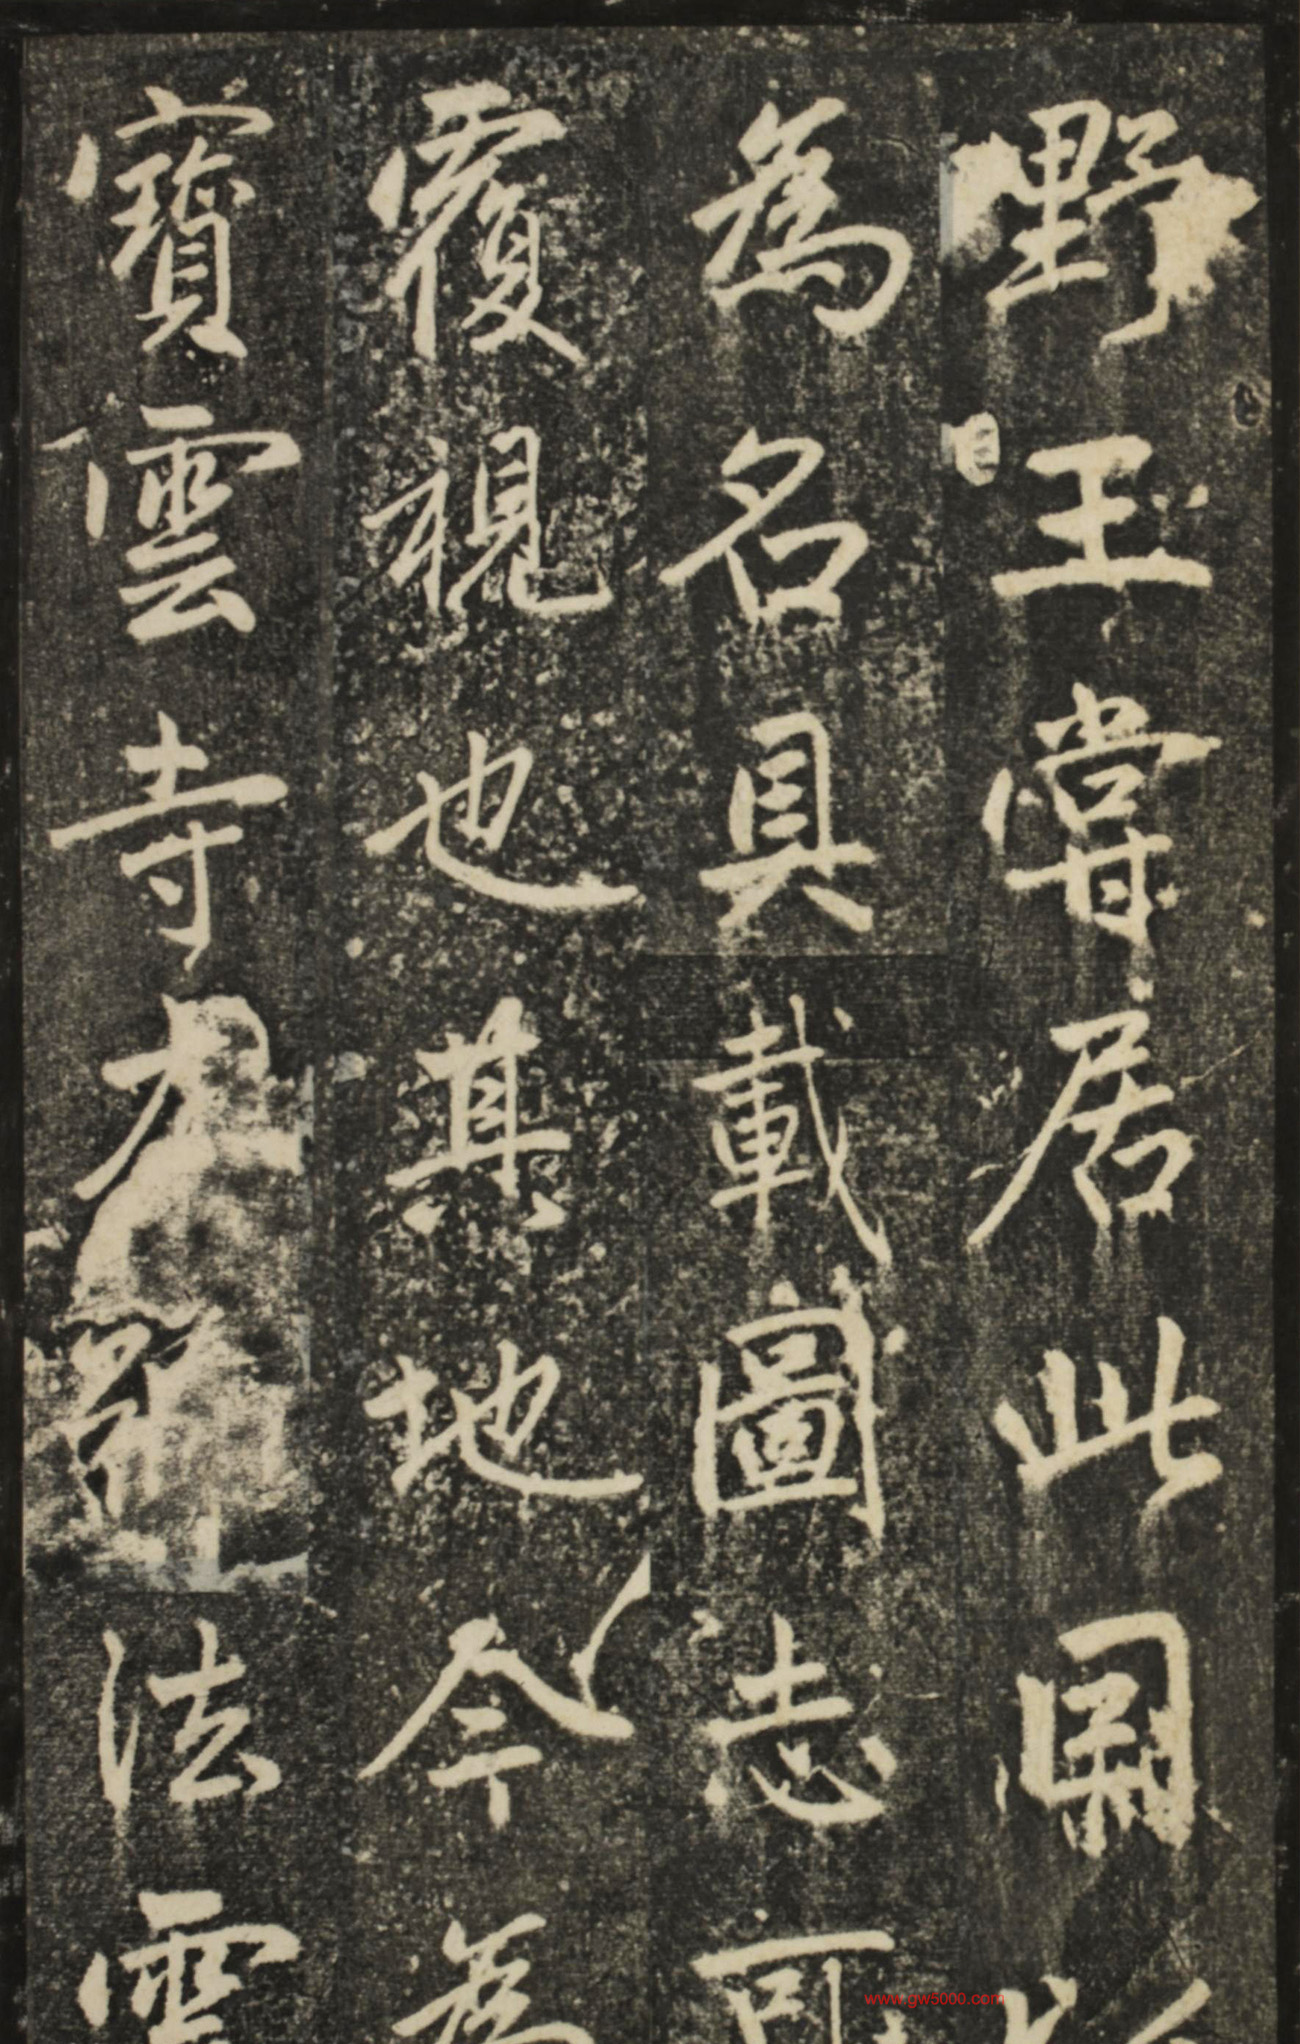 野王嘗居此
為名具載圖志可
覆視也其地今為
寶雲寺法雲
www.gw5000.com